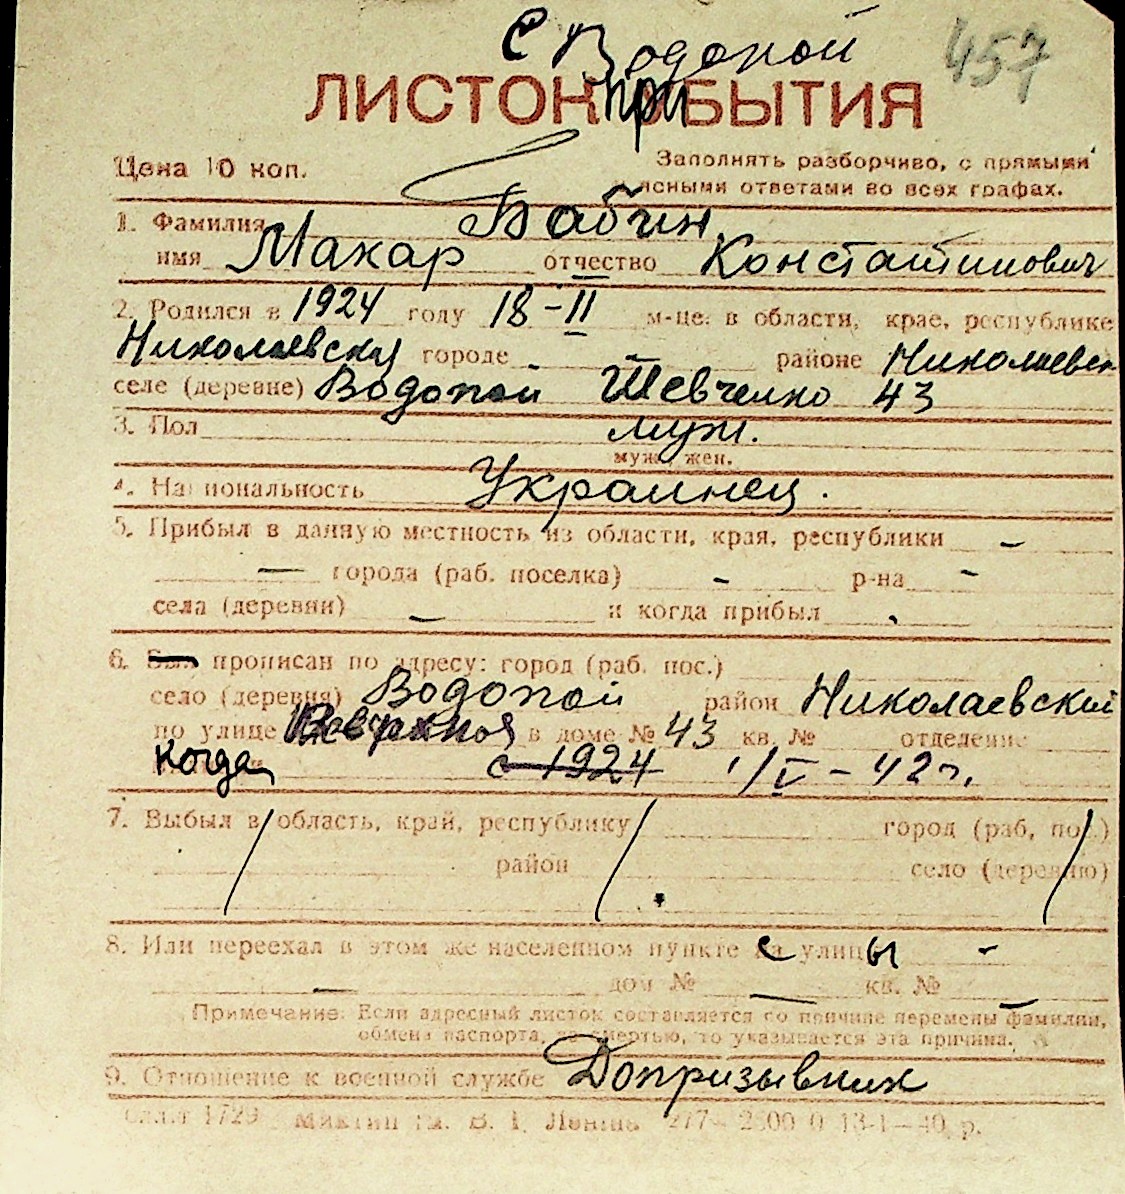 с Водопой 457
ЛИСТОК прибытия
Цена 10 коп.
Заполнять разборчиво, с прямыми
ясными ответами во всех графах.
1. Фамилия Бабин.
имя Макар отчество Константинович
2. Родился в 1924 году 18-II м-це. в области, крае, республике
Николаевская городе — районе Николаевск
селе (деревне) Водопой Шевченко 43
3. Пол муж.
муж., жен.
4. Национальность Украинец.
5. Прибыл в данную местность из области, края, республики —
— города (раб. поселка) - р-на -
села (деревни) — и когда прибыл
6. Был прописан по адресу: город (раб. пос.)
село (деревня) Водопой район Николаевский
по улице в доме № 43 кв. № отделение
когда с 1924 1/V-42 г.
7. Выбыл в область, край, республику город (раб, пос.)
район село (деревню)
8. Или переехал в этом же населенном пункте с улицы -
— дом № — кв. № —
Примечание: Если адресный листок составляется по причине перемены фамилии,
обмена паспорта, за смертью, то указывается эта причина.
9. Отношение к военной службе Допризывник
1729 В. І. Леніна 277— 2500 0 13-1—40 р.